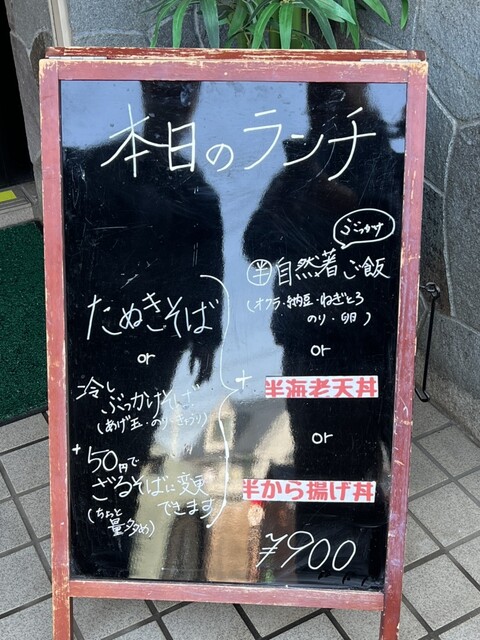 本日のランチ
たぬきそば
or
冷し
ぶっかけそば
(あげ玉・のり・きゅうり)
+50円で
ざるそばに変更
できます
(ちょっと
量多め)
+
ぶっかけ
半 自然薯ご飯
(オクラ・納豆・ねぎとろ
のり・卵)
or
半海老天丼
or
半から揚げ丼
¥900